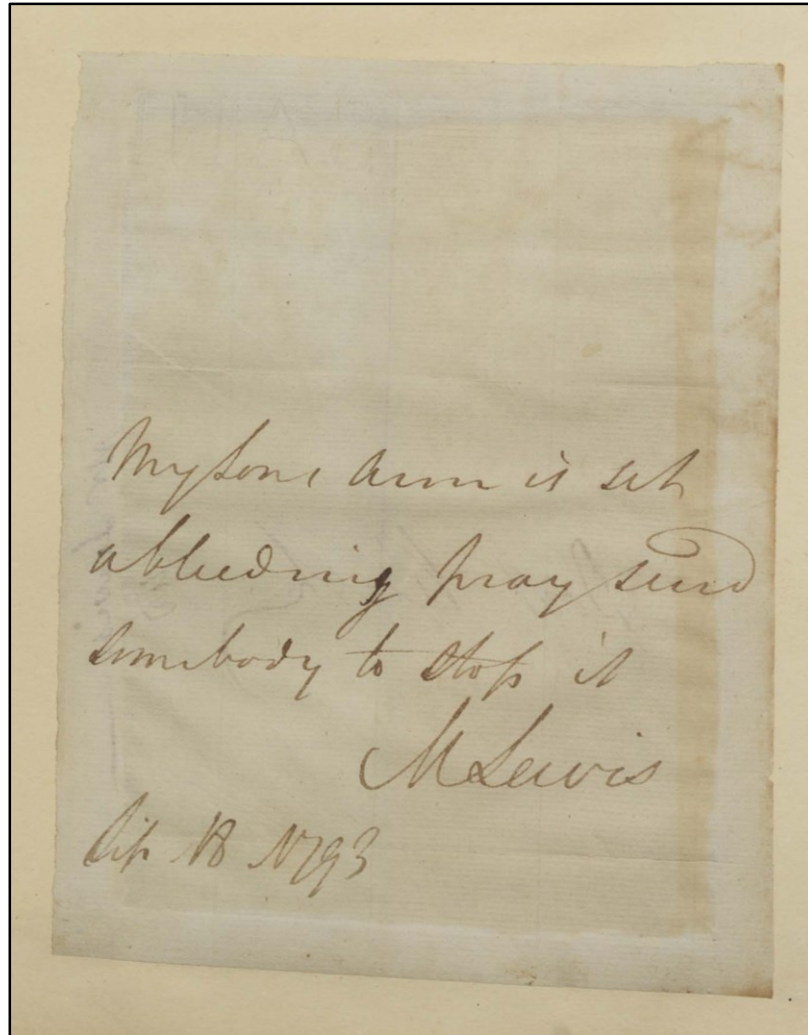 My Sons Arm is set
ableeding pray send
somebody to stop it
M Lewis
Sep 18 1793